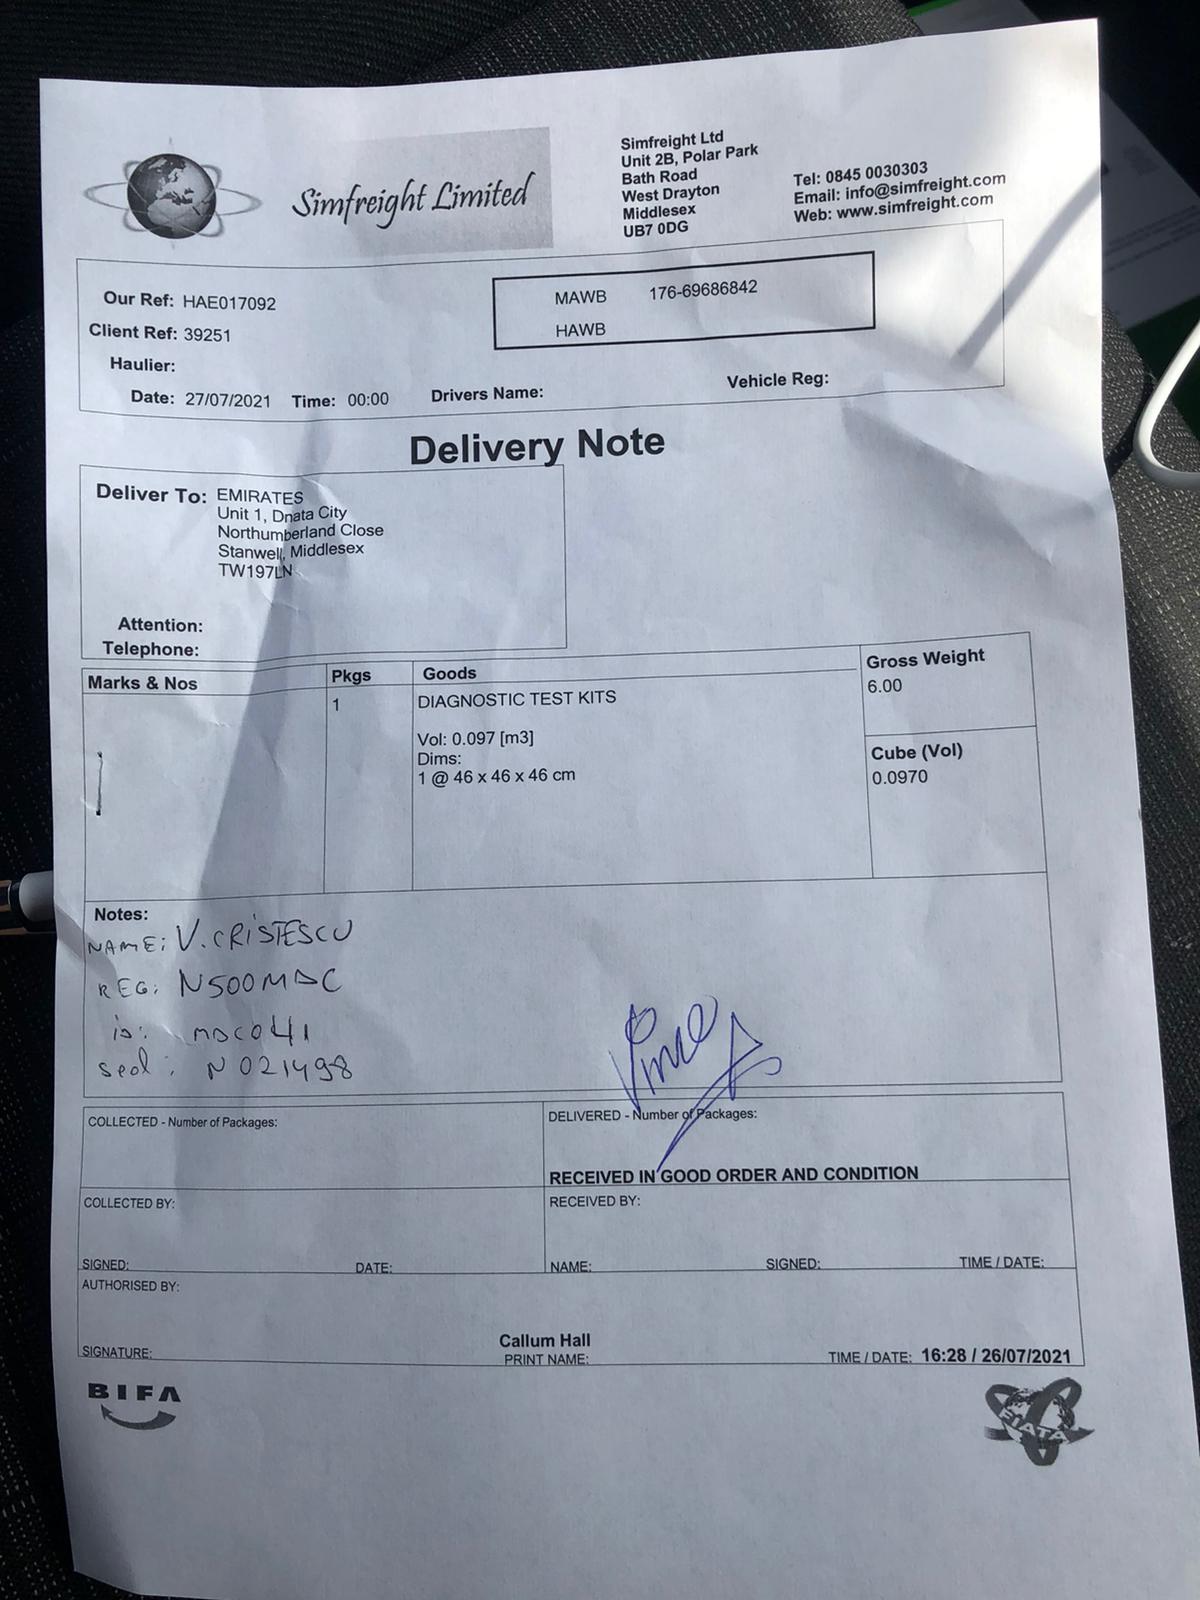 Simfreight Limited
Simfreight Ltd
Unit 2B, Polar Park
Bath Road
West Drayton
Middlesex
UB7 0DG
Tel: 0845 0030303
Email: info@simfreight.com
Web: www.simfreight.com
Our Ref: HAE017092
Client Ref: 39251
Haulier:
Date: 27/07/2021 Time: 00:00 Drivers Name: Vehicle Reg:
MAWB 176-69686842
HAWB
Delivery Note
Deliver To: EMIRATES
Unit 1, Dnata City
Northumberland Close
Stanwell, Middlesex
TW197LN
Attention:
Telephone:
Marks & Nos Pkgs Goods Gross Weight
1 DIAGNOSTIC TEST KITS 6.00
Vol: 0.097 [m3]
Dims:
1 @ 46 x 46 x 46 cm
Cube (Vol)
0.0970
Notes:
NAME: V. CRISTESCU
REG: N500MDC
iD: MDC041
Seal: N021498
COLLECTED - Number of Packages:
DELIVERED - Number of Packages:
RECEIVED IN GOOD ORDER AND CONDITION
COLLECTED BY:
RECEIVED BY:
SIGNED: DATE:
NAME: SIGNED: TIME / DATE:
AUTHORISED BY:
Callum Hall
SIGNATURE: PRINT NAME: TIME / DATE: 16:28 / 26/07/2021
BIFA
FIATA